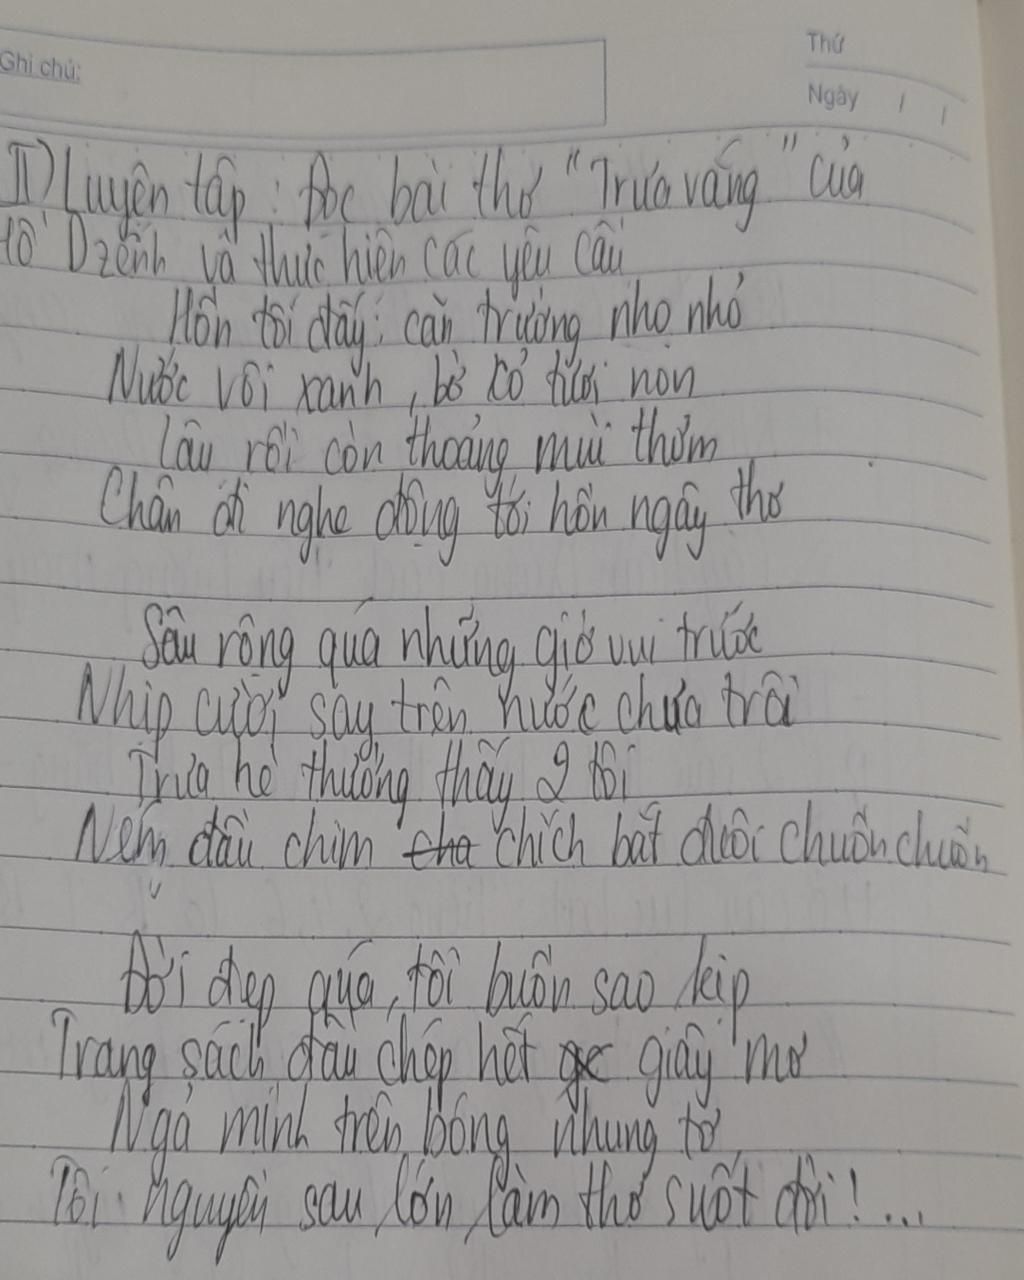 Ghi chú:
Thứ
Ngày / /
II) Luyện tập: Đọc bài thơ "Trưa vắng" của
Hồ Dzếnh và thực hiện các yêu cầu
Hồn tôi đấy: căn trường nho nhỏ
Nước vôi xanh, bờ cỏ tươi non
Lâu rồi còn thoảng mùi thơm
Chân đi nghe động tới hồn ngây thơ
Sâu rộng quá những giờ vui trước
Nhịp cười say trên nước chưa trôi
Trưa hè thường thấy 2 tôi
Ném đầu chim chích bắt đuôi chuồn chuồn
Đời đẹp quá, tôi buồn sao kịp
Trang sách đầu chép hết giấy mơ
Ngả mình trên bóng nhung tơ
Tôi nguyện sau lớn làm thơ suốt đời!...